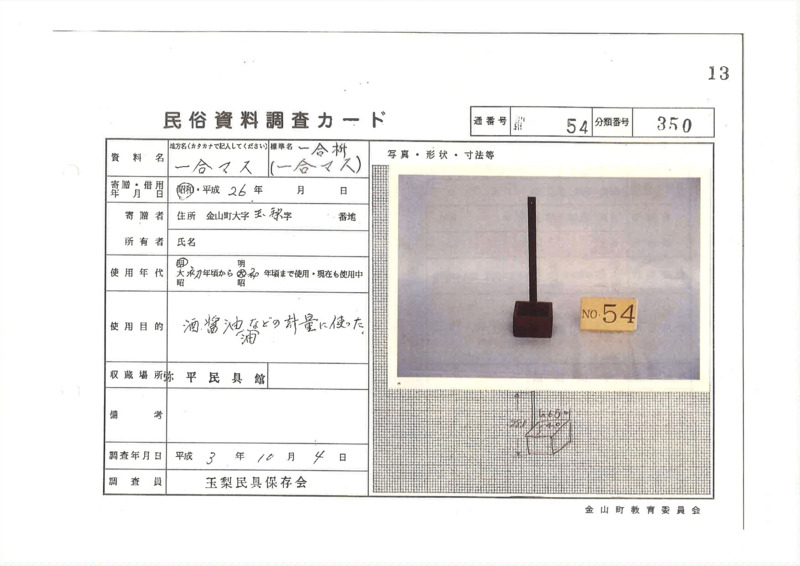 13
民俗資料調査カード
通番号 54 分類番号 350
資料名 地方名(カタカナで記入してください) 一合マス 標準名 一合枡 (一合マス)
写真・形状・寸法等
寄贈・借用年月日 昭和・平成 26年 月 日
寄贈者 住所 金山町大字玉梨字 番地
所有者 氏名
使用年代 明大昭 初年頃から 明大昭 初年頃まで使用・現在も使用中
使用目的 酒醤油などの計量に使った
油
収蔵場所 弥平民具館
備考
調査年月日 平成 3年 10月 4日
調査員 玉梨民具保存会
NO.54
金山町教育委員会